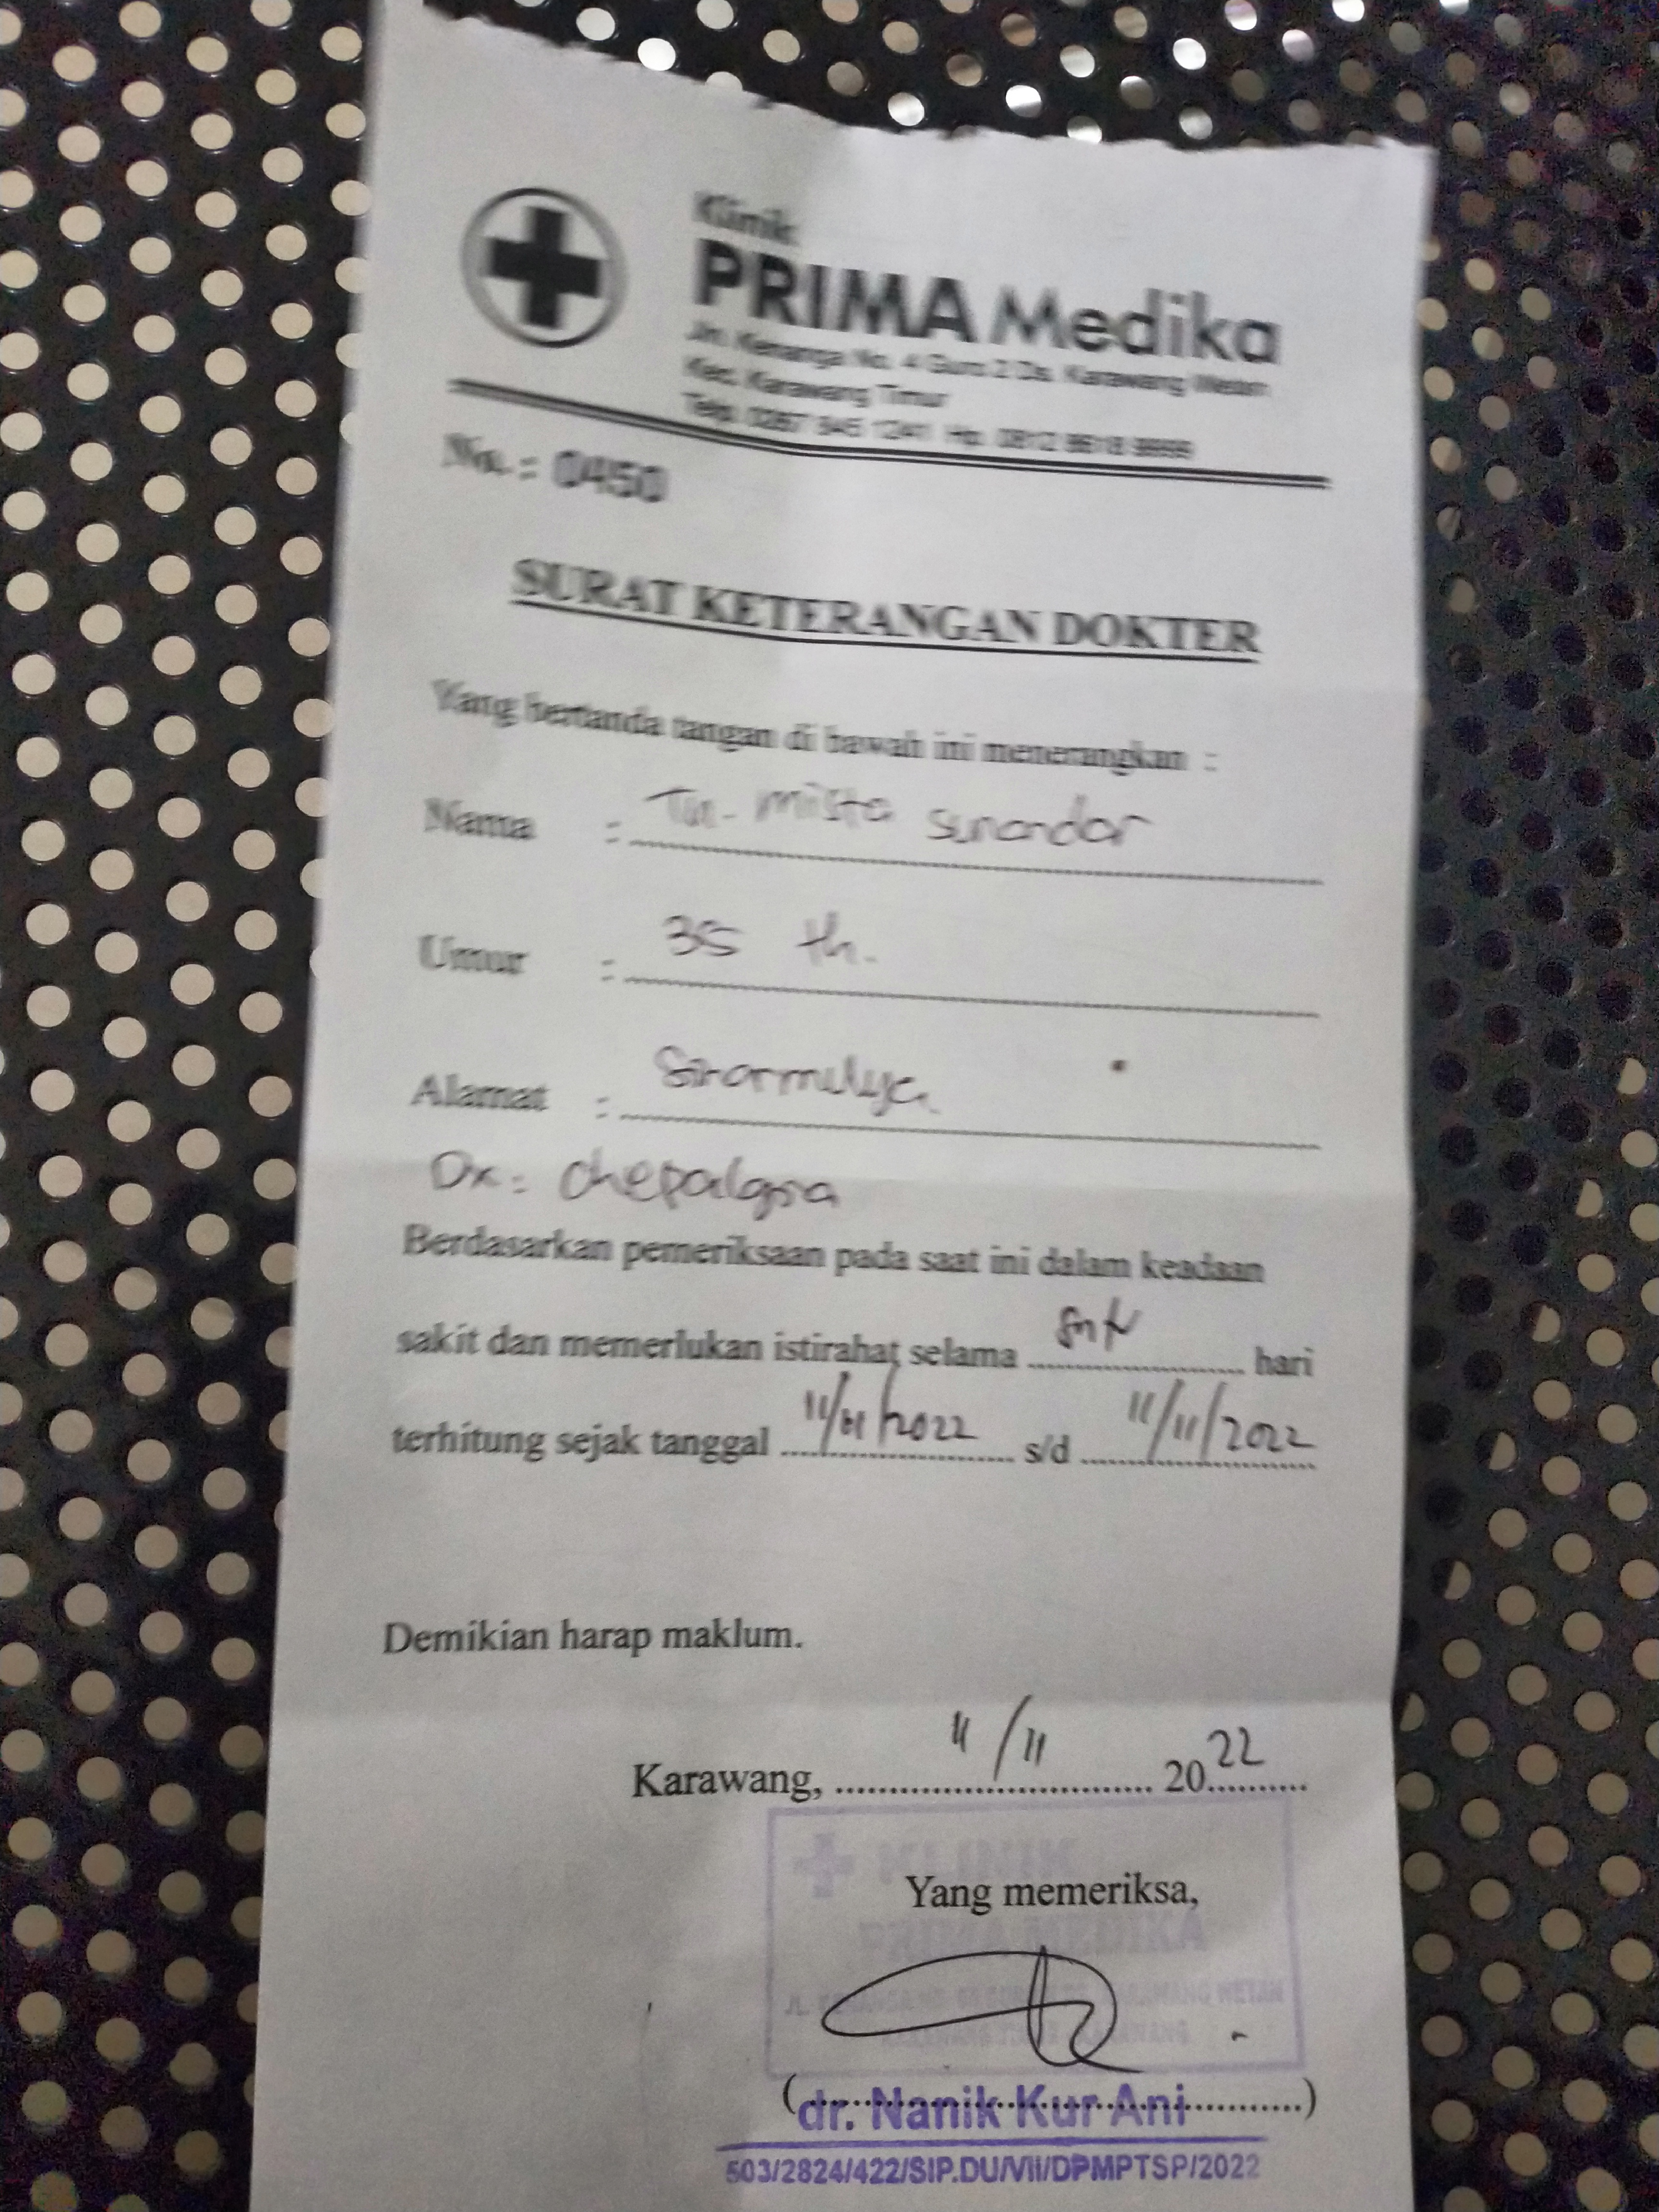 Klinik
PRIMA Medika
Jln. Kenanga No. 4 Guro 2 Ds. Karawang Wetan
Kec. Karawang Timur
Telp. 0267 845 1241 Hp. 0812 9618 9999
No. : 0450
SURAT KETERANGAN DOKTER
Yang bertanda tangan di bawah ini menerangkan :
Nama : Tn. mista sunandar
Umur : 35 th.
Alamat : Sinarmulya
Dx : chepalgia
Berdasarkan pemeriksaan pada saat ini dalam keadaan
sakit dan memerlukan istirahat selama hari
terhitung sejak tanggal 11/11/2022 s/d 11/11/2022
Demikian harap maklum.
Karawang, 11/11 2022
KLINIK
Yang memeriksa,
PRIMA MEDIKA
KARAWANG WETAN
(dr. Nanik Kur Ani)
503/2824/422/SIP.DU/VII/DPMPTSP/2022